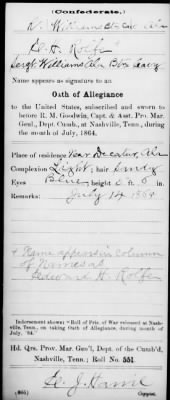 (Confederate.)
Williams
E. H. Rolfe
Sergt Williams Ala Btn Cavy
Name appears as signature to an
Oath of Allegiance
to the United States, subscribed and sworn to
before R. M. Goodwin, Capt. & Asst. Pro. Mar.
Genl., Dept. Cumb., at Nashville, Tenn., during
the month of July, 1864.
Place of residence Near Decatur, Ala
Complexion Light; hair Sandy
Eyes Blue; height 5 ft. 8 in.
Remarks: July 14 1864
Name appears in column
of Names as
Edward H. Rolfe
Indorsement shows: "Roll of Pris. of War released at Nash-
ville, Tenn., on taking Oath of Allegiance, during month of
July, '64."
Hd. Qrs. Prov. Mar. Gen'l, Dept. of the Cumb'd,
Nashville, Tenn.; Roll No. 551.
(065)
Copyist.